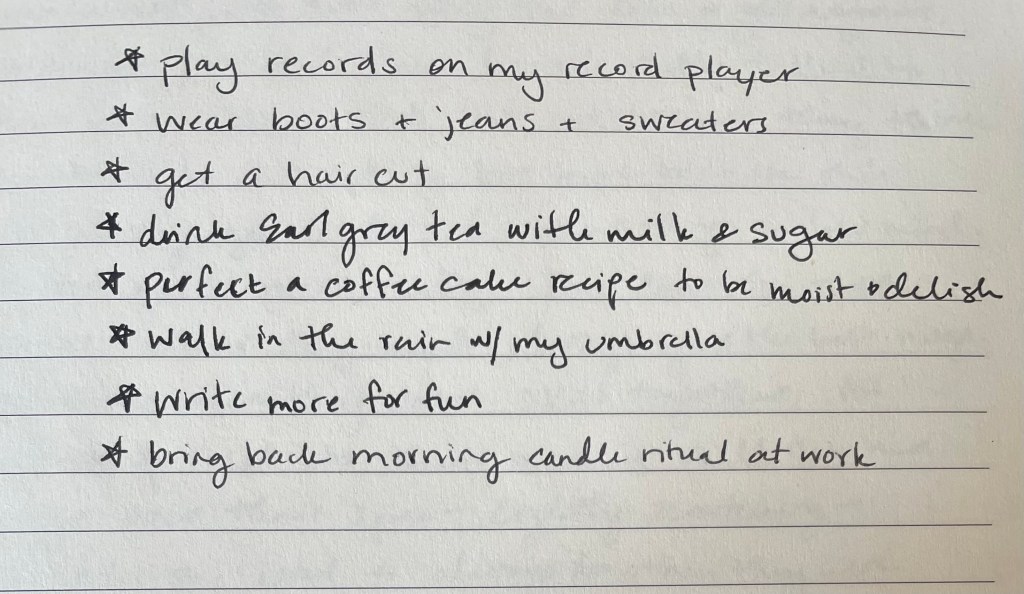 * play records on my record player
* wear boots + jeans + sweaters
* get a hair cut
* drink Earl grey tea with milk & sugar
* perfect a coffee cake recipe to be moist & delish
* walk in the rain w/ my umbrella
* write more for fun
* bring back morning candle ritual at work